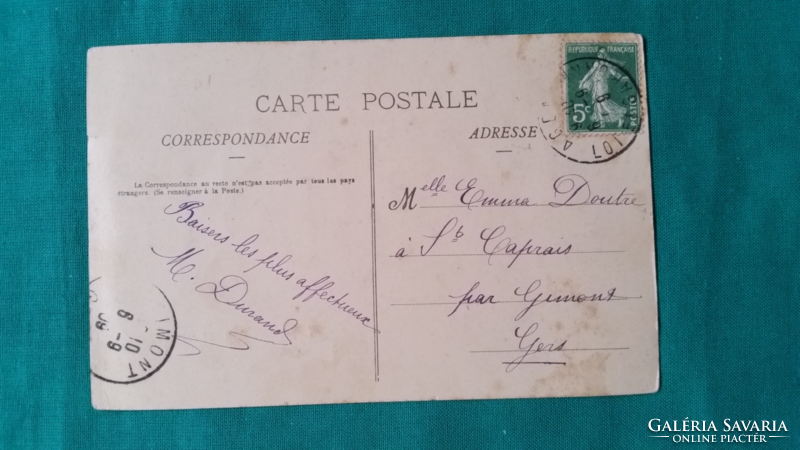 CARTE POSTALE
CORRESPONDANCE
ADRESSE
La Correspondance au verso n'est pas acceptée par tous les pays
étrangers. (Se renseigner à la Poste.)
REPUBLIQUE FRANÇAISE
5c
POSTES
LOT
Melle Emma Doutre
à St Caprais
par Gimont
Gers
Baisers les plus affectueux
M. Durand
IMONT
10-9
09
GALÉRIA SAVARIA
ONLINE PIACTÉR